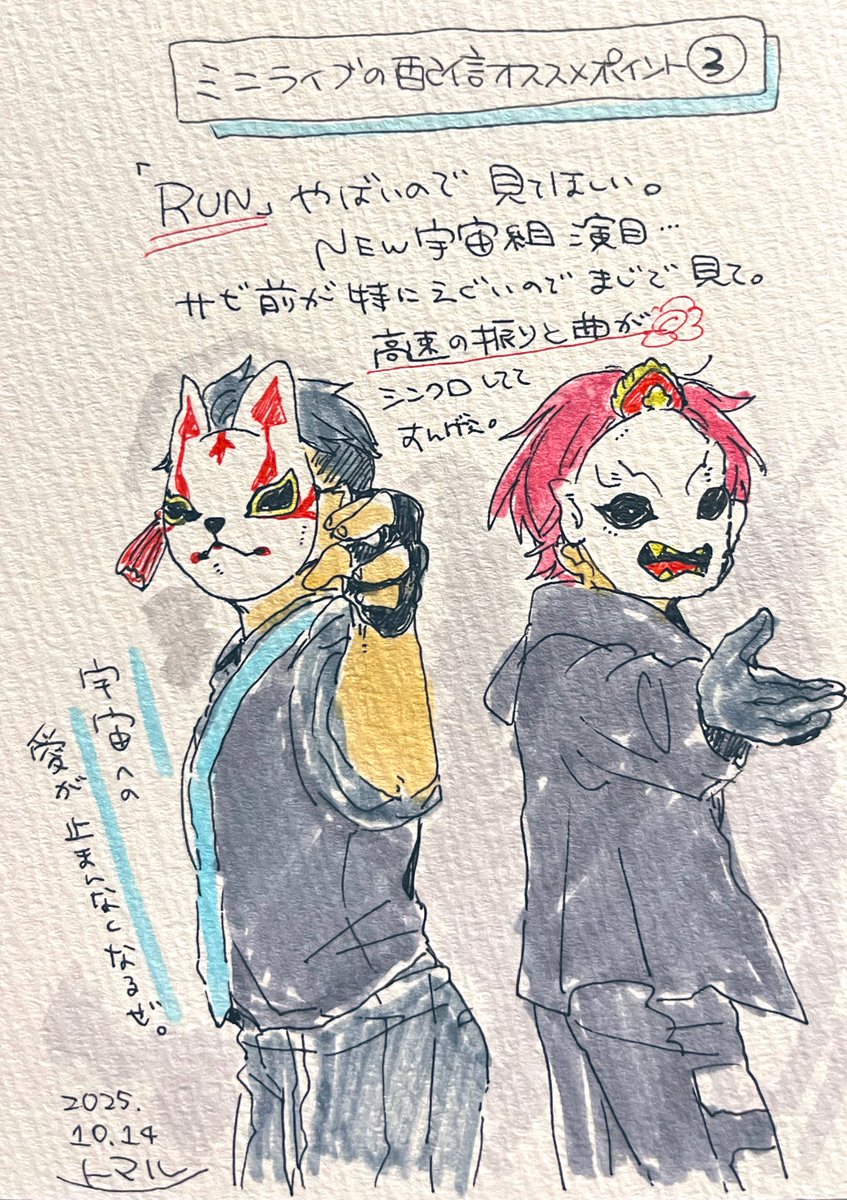 ミニライブの配信オススメポイント③
「RUN」やばいので見てほしい。
NEW宇宙組演目…
サゼ前が特にえぐいのでまじで見て。
高速の振りと曲が
シンクロしてて
すんげえ。
宇宙への
愛が止まんなくなるぜ。
2025.
10.14
トマル